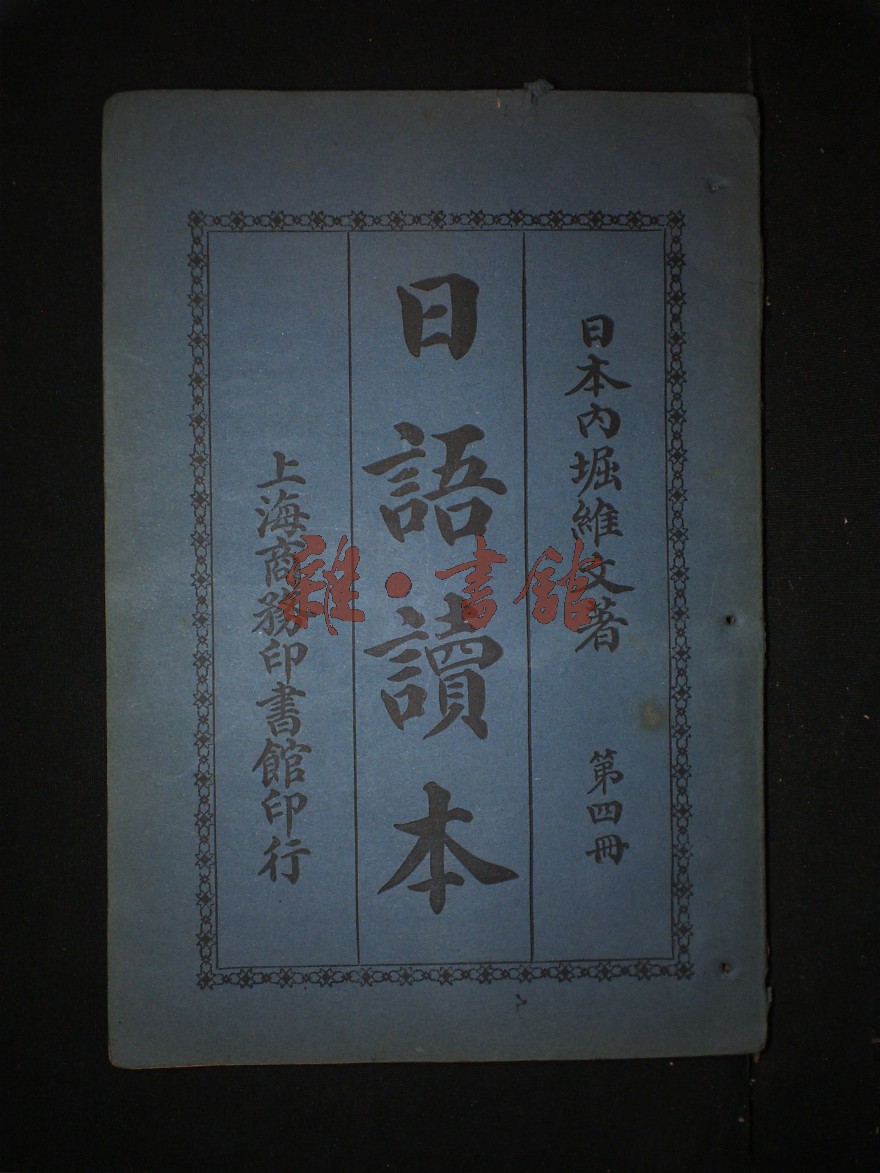 日本内堀維文著 第四冊
日語讀本
上海商務印書館印行
雜·書館